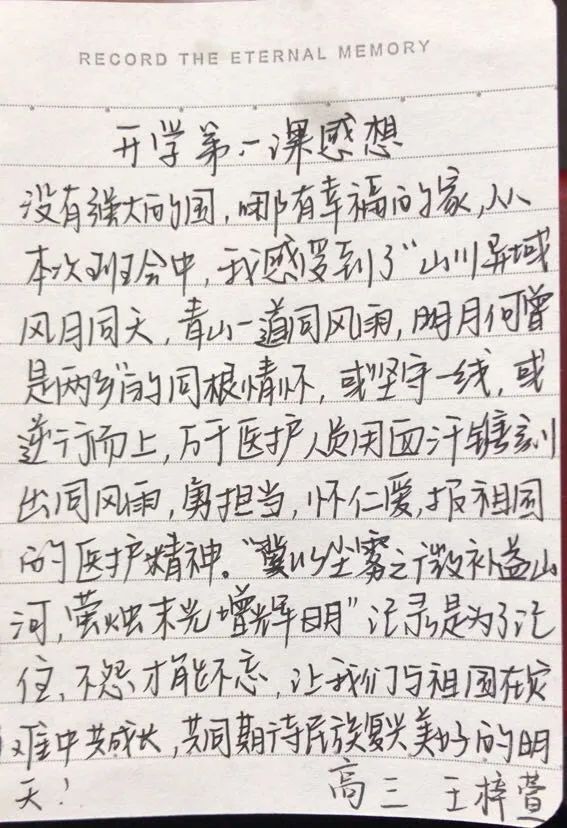 RECORD THE ETERNAL MEMORY
开学第一课感想
没有强大的国，哪有幸福的家，从
本次班会中，我感受到了“山川异域
风月同天，青山一道同风雨，明月何曾
是两乡”的同根情怀，或坚守一线，或
逆行而上，万千医护人员用血汗镌刻
出同风雨，勇担当，怀仁爱，报祖国
的医护精神。“冀以尘雾之微补益山
河，萤烛末光增辉日月”记录是为了记
住，不怨才能不忘，让我们与祖国在灾
难中共成长，共同期待民族复兴美好的明
天！
高三 王梓萱